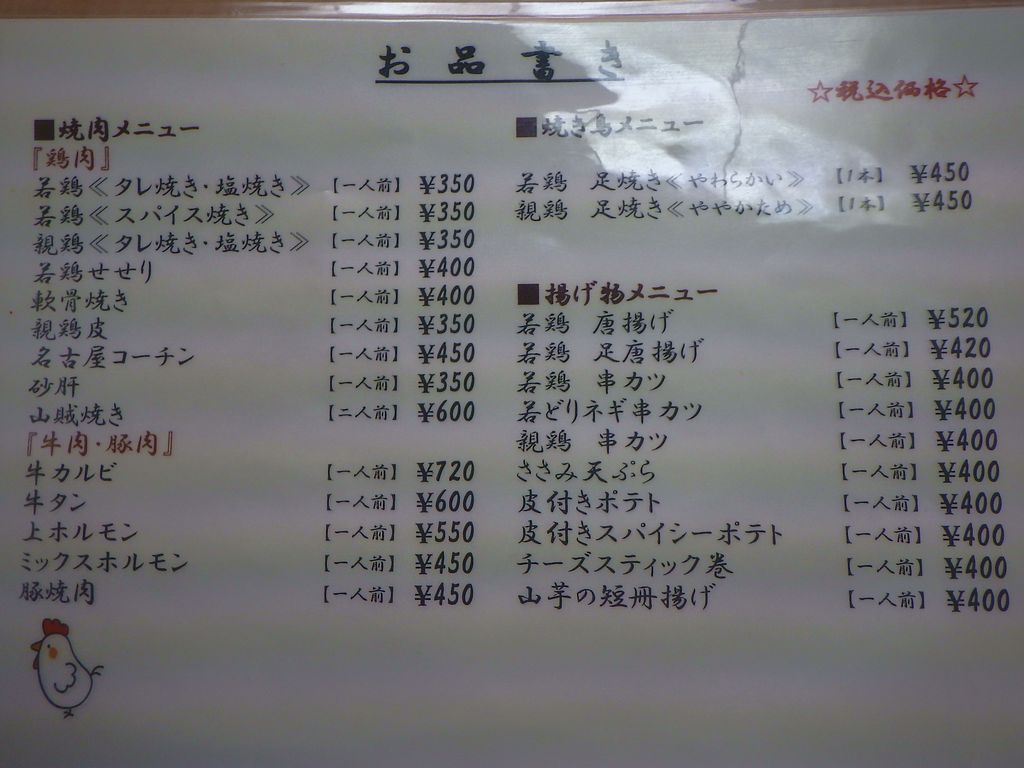 お品書き
☆税込価格☆
■焼肉メニュー
『鶏肉』
若鶏≪タレ焼き・塩焼き≫ 【一人前】 ¥350
若鶏≪スパイス焼き≫ 【一人前】 ¥350
親鶏≪タレ焼き・塩焼き≫ 【一人前】 ¥350
若鶏せせり 【一人前】 ¥400
軟骨焼き 【一人前】 ¥400
親鶏皮 【一人前】 ¥350
名古屋コーチン 【一人前】 ¥450
砂肝 【一人前】 ¥350
山賊焼き 【二人前】 ¥600
『牛肉・豚肉』
牛カルビ 【一人前】 ¥720
牛タン 【一人前】 ¥600
上ホルモン 【一人前】 ¥550
ミックスホルモン 【一人前】 ¥450
豚焼肉 【一人前】 ¥450
■焼き鳥メニュー
若鶏 足焼き≪やわらかい≫ 【1本】 ¥450
親鶏 足焼き≪ややかため≫ 【1本】 ¥450
■揚げ物メニュー
若鶏 唐揚げ 【一人前】 ¥520
若鶏 足唐揚げ 【一人前】 ¥420
若鶏 串カツ 【一人前】 ¥400
若どりネギ串カツ 【一人前】 ¥400
親鶏 串カツ 【一人前】 ¥400
ささみ天ぷら 【一人前】 ¥400
皮付きポテト 【一人前】 ¥400
皮付きスパイシーポテト 【一人前】 ¥400
チーズスティック巻 【一人前】 ¥400
山芋の短冊揚げ 【一人前】 ¥400